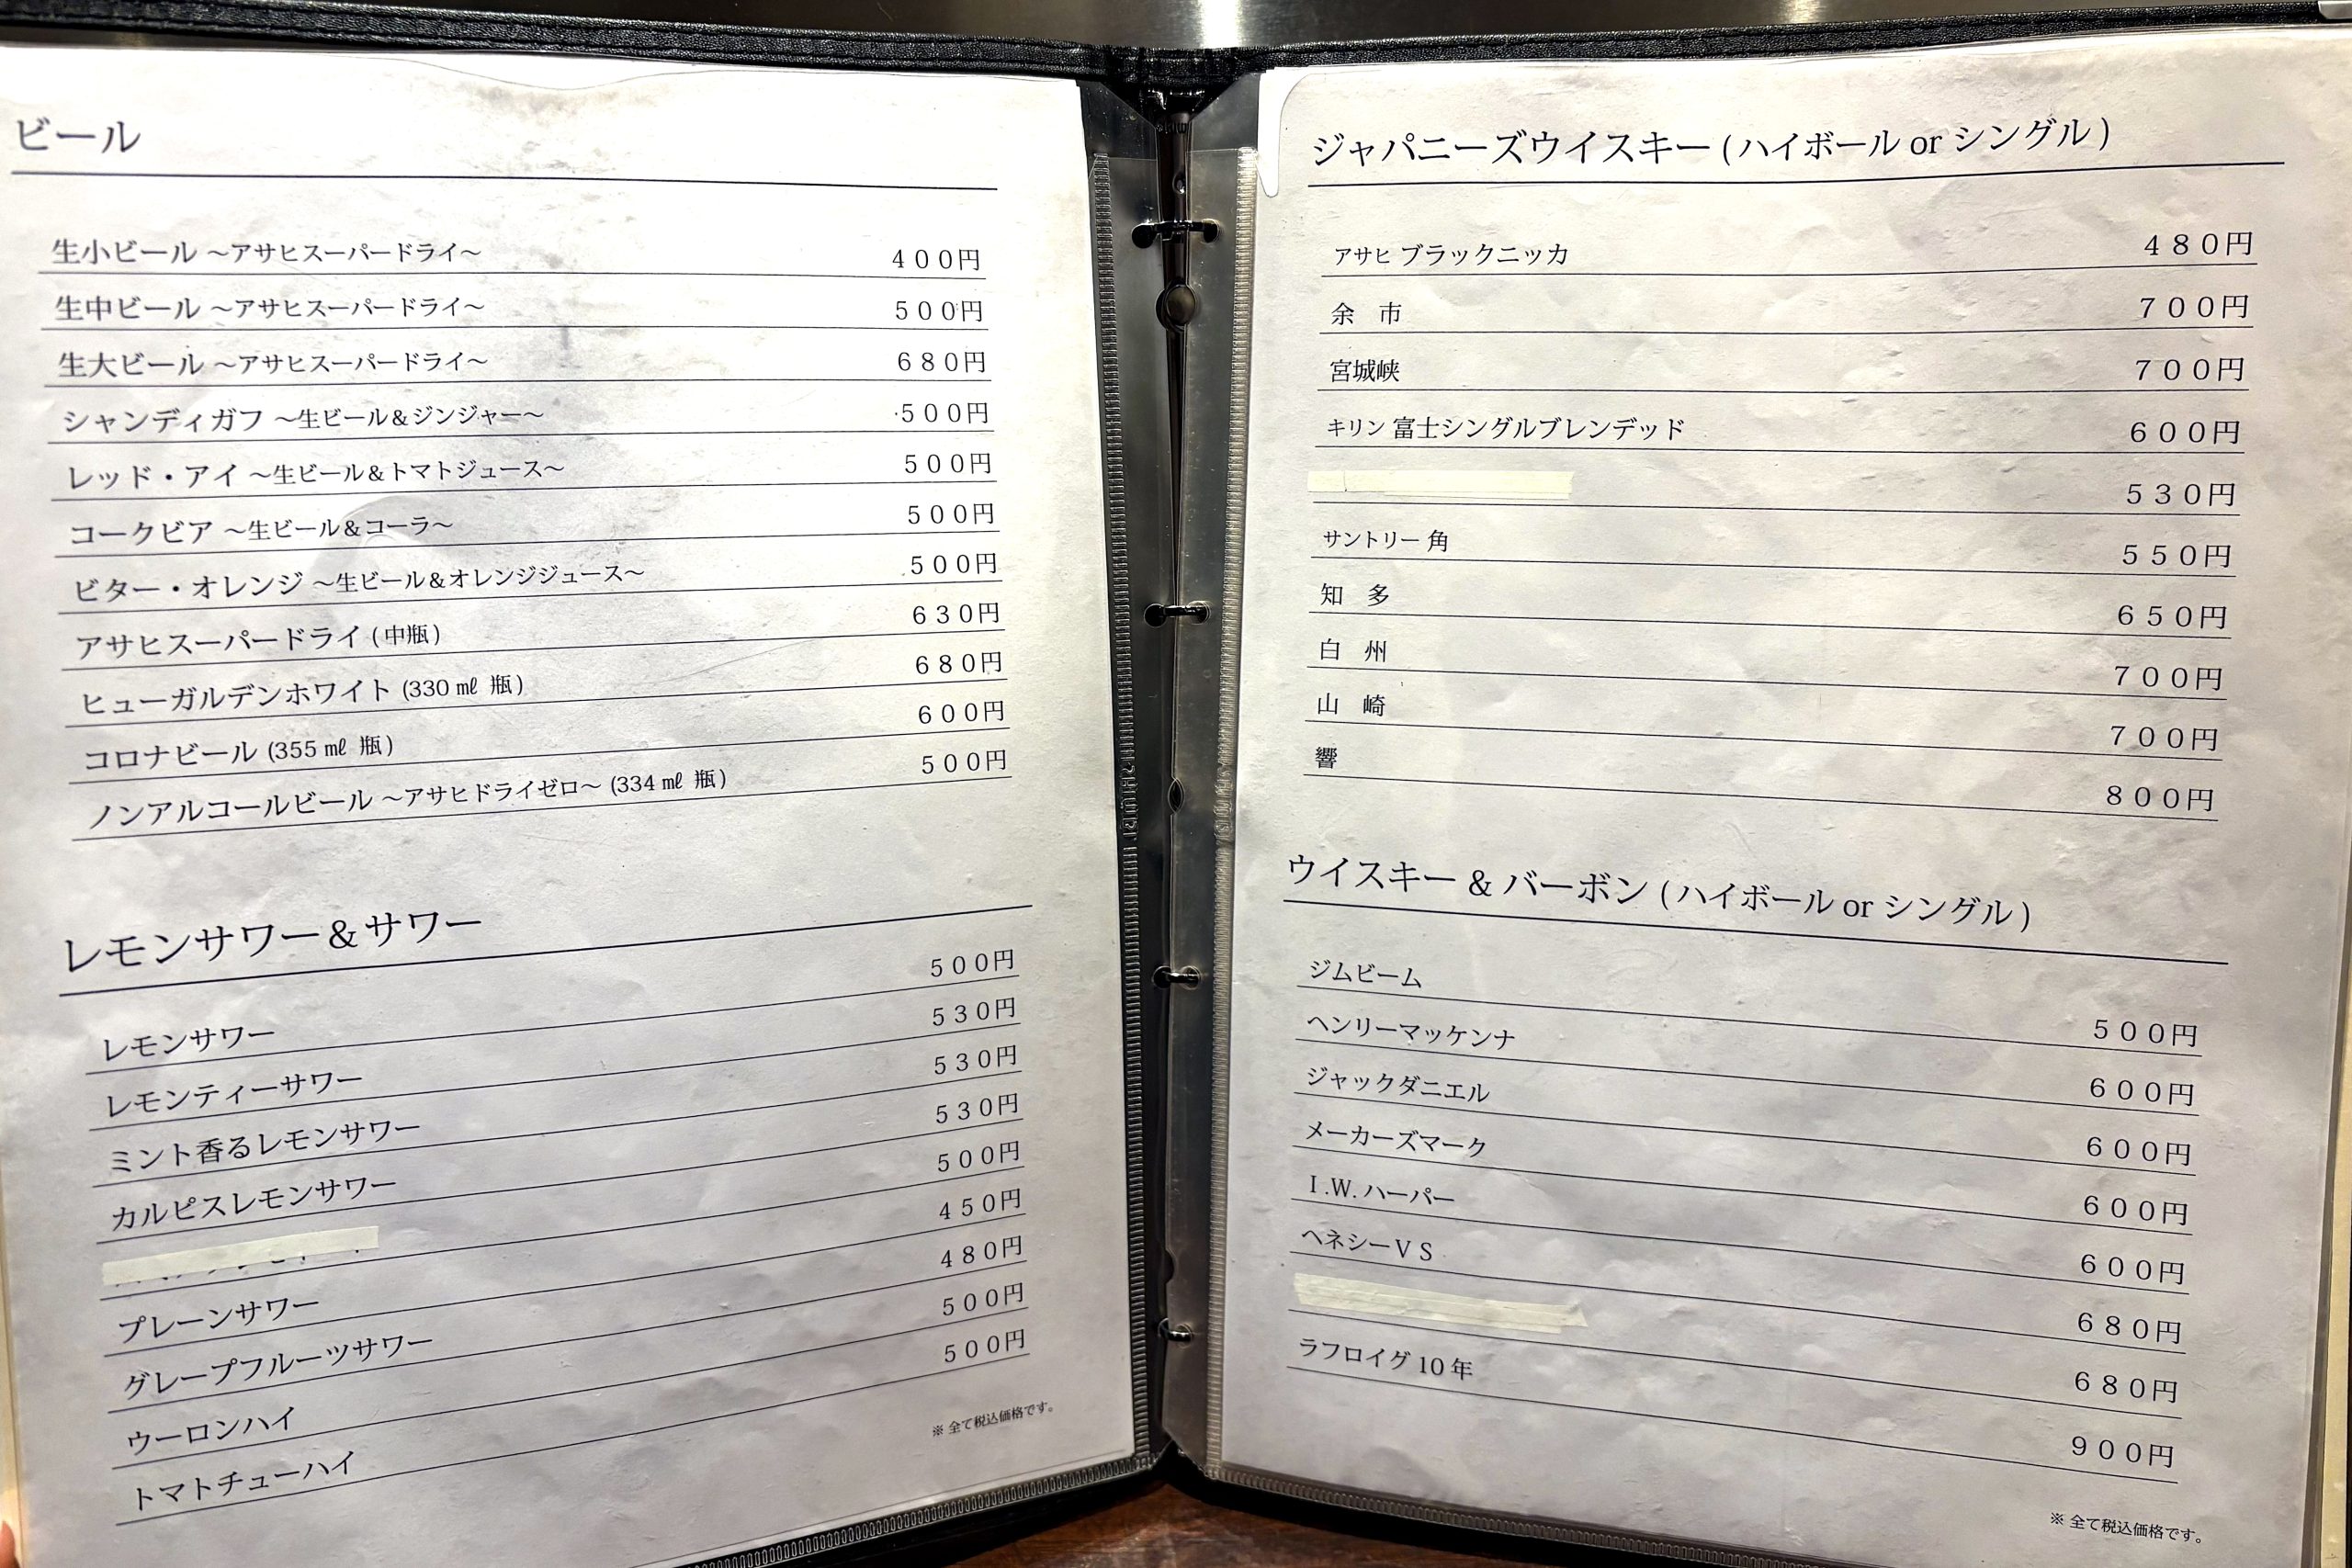 ビール
生小ビール ～アサヒスーパードライ～ 400円
生中ビール ～アサヒスーパードライ～ 500円
生大ビール ～アサヒスーパードライ～ 680円
シャンディガフ ～生ビール＆ジンジャー～ 500円
レッド・アイ ～生ビール＆トマトジュース～ 500円
コークビア ～生ビール＆コーラ～ 500円
ビター・オレンジ ～生ビール＆オレンジジュース～ 500円
アサヒスーパードライ (中瓶) 630円
ヒューガルデンホワイト (330㎖ 瓶) 680円
コロナビール (355㎖ 瓶) 600円
ノンアルコールビール ～アサヒドライゼロ～ (334㎖ 瓶) 500円
レモンサワー＆サワー
レモンサワー 500円
レモンティーサワー 530円
ミント香るレモンサワー 530円
カルピスレモンサワー 530円
500円
プレーンサワー 450円
グレープフルーツサワー 480円
ウーロンハイ 500円
トマトチューハイ 500円
※ 全て税込価格です。
ジャパニーズウイスキー (ハイボール or シングル)
アサヒ ブラックニッカ 480円
余 市 700円
宮城峡 700円
キリン 富士シングルブレンデッド 600円
530円
サントリー 角 550円
知 多 650円
白 州 700円
山 崎 700円
響 800円
ウイスキー & バーボン (ハイボール or シングル)
ジムビーム 500円
ヘンリーマッケンナ 600円
ジャックダニエル 600円
メーカーズマーク 600円
I.W.ハーパー 600円
ヘネシーVS 680円
680円
ラフロイグ 10 年 900円
※ 全て税込価格です。